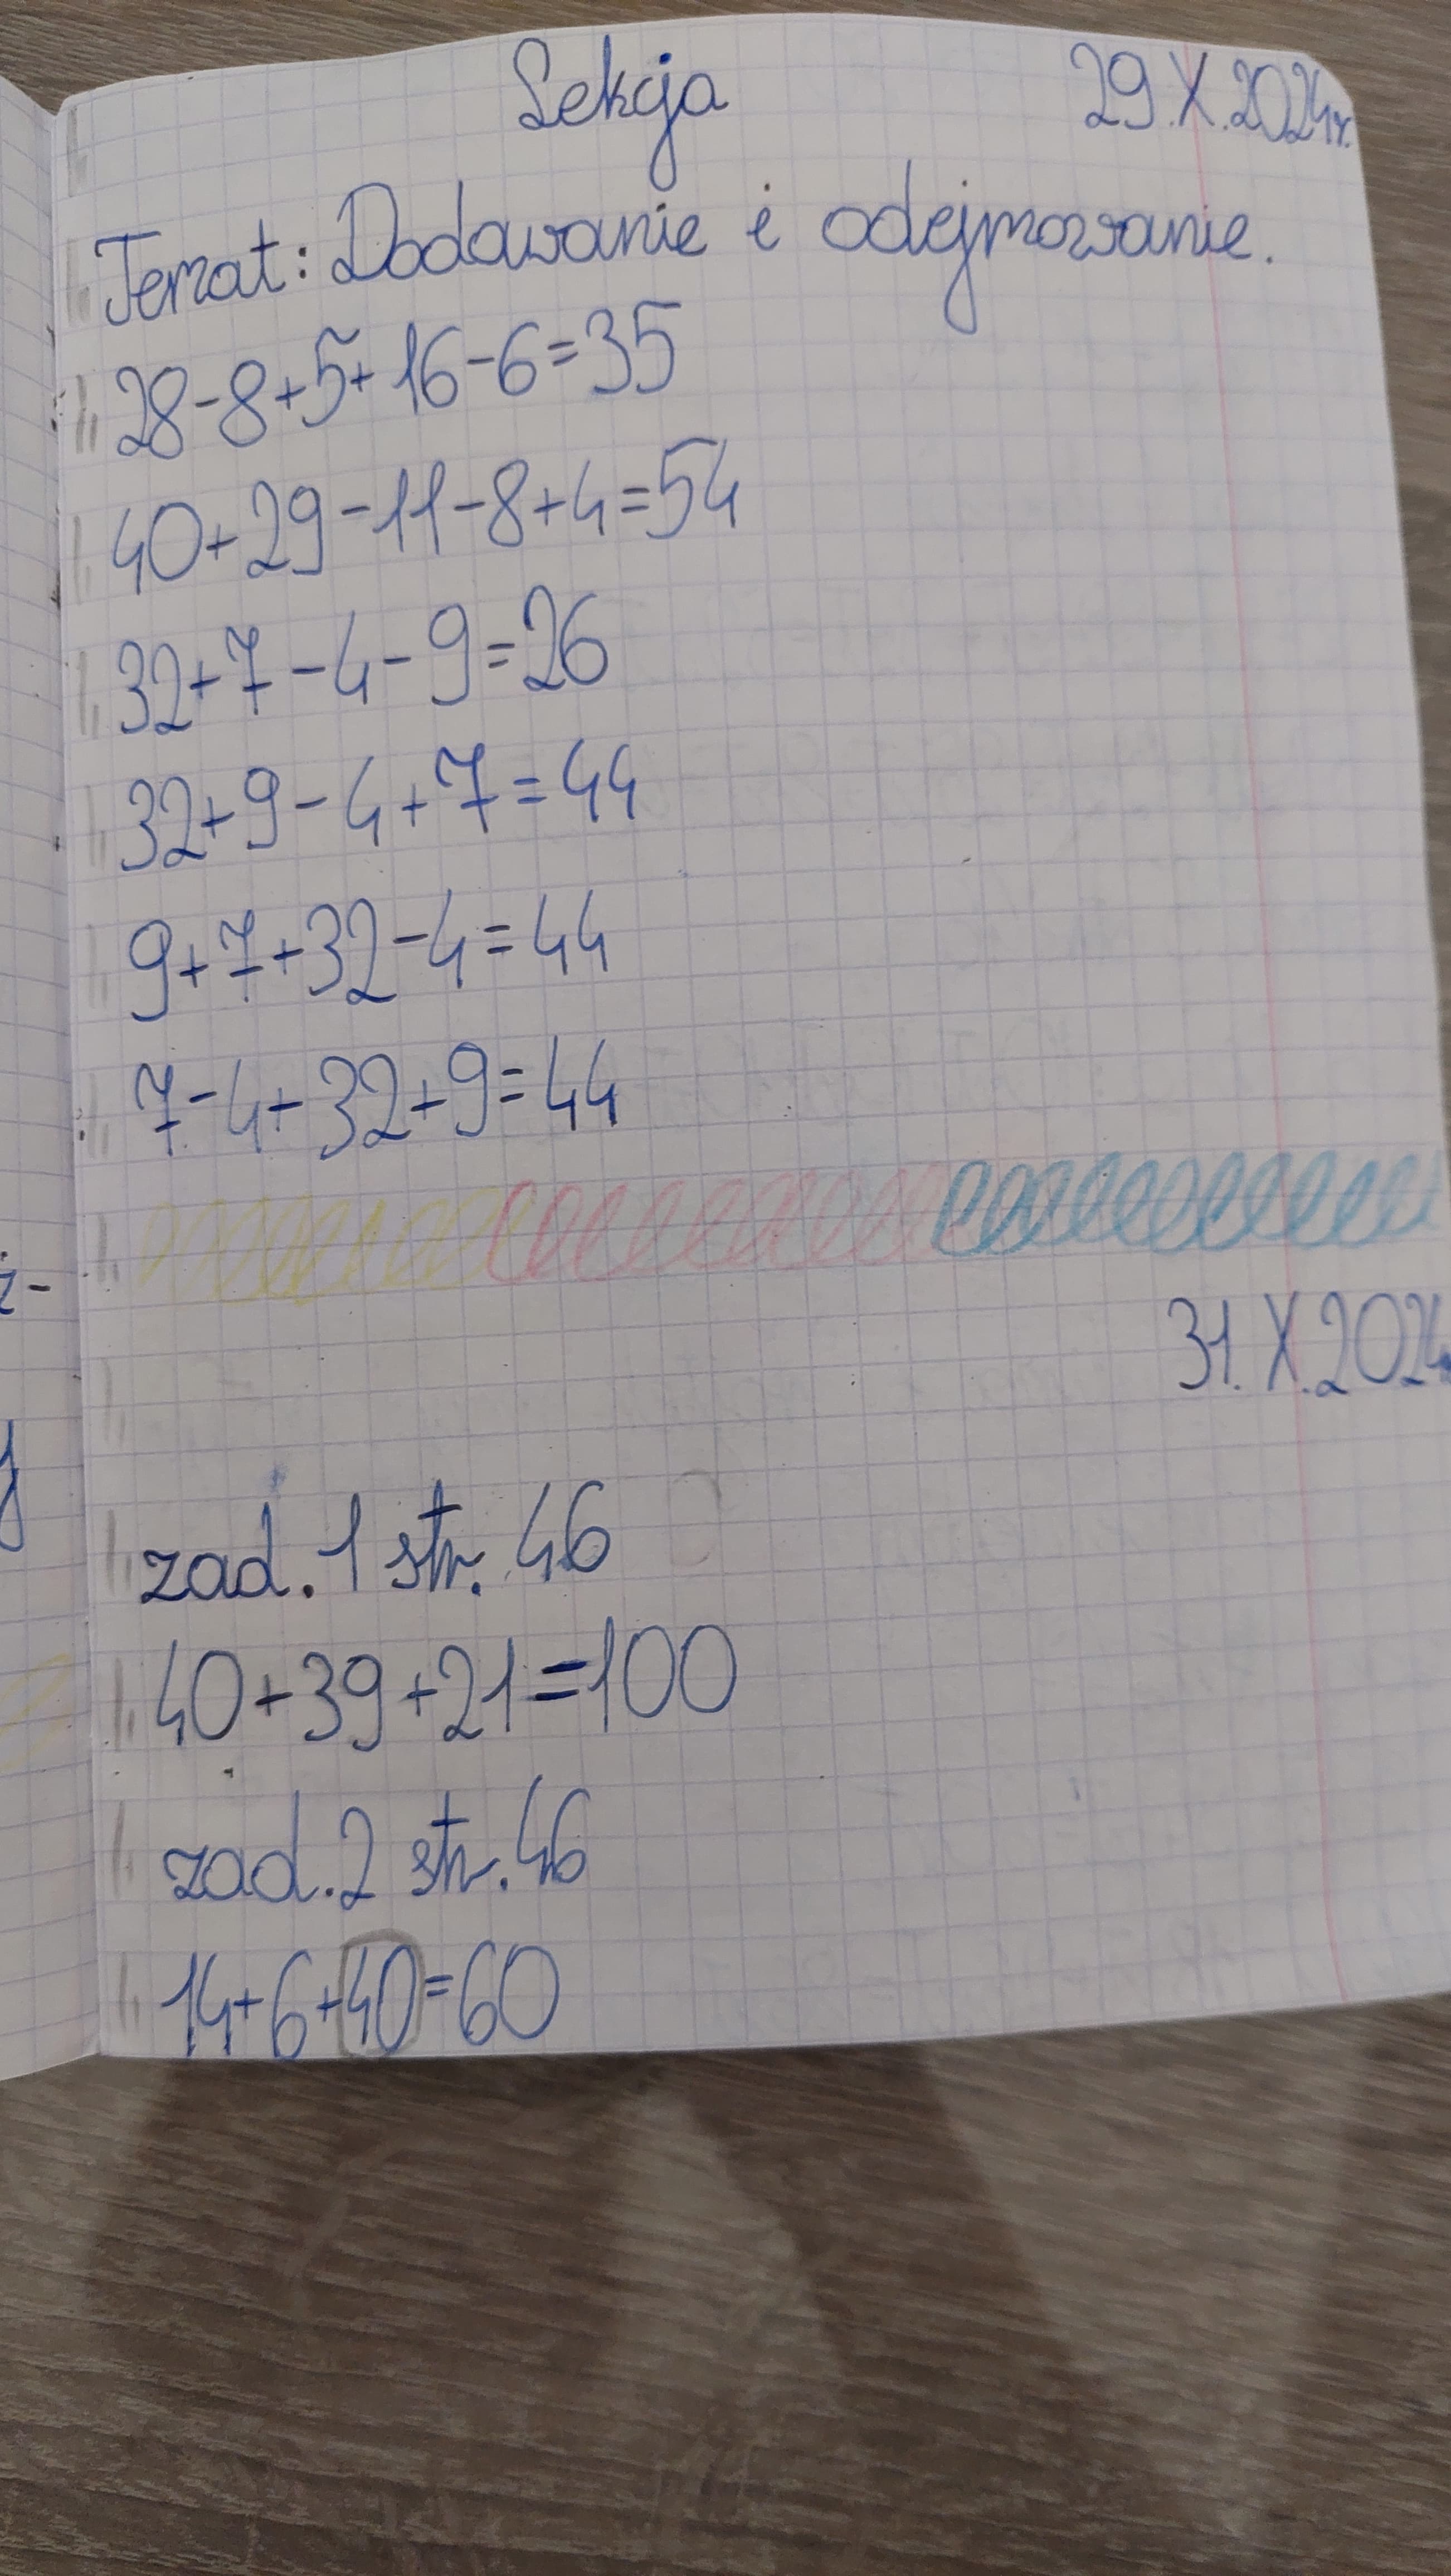 Lekcja 29.X.2024r.
Temat: Dodawanie i odejmowanie.
28-8+5+16-6=35
40+29-11-8+4=54
32+7-4-9=26
32+9-4+7=44
9+7+32-4=44
7-4+32+9=44
31.X.2024
zad.1 str.46
40+39+21=100
zad.2 str.46
14+6+40=60